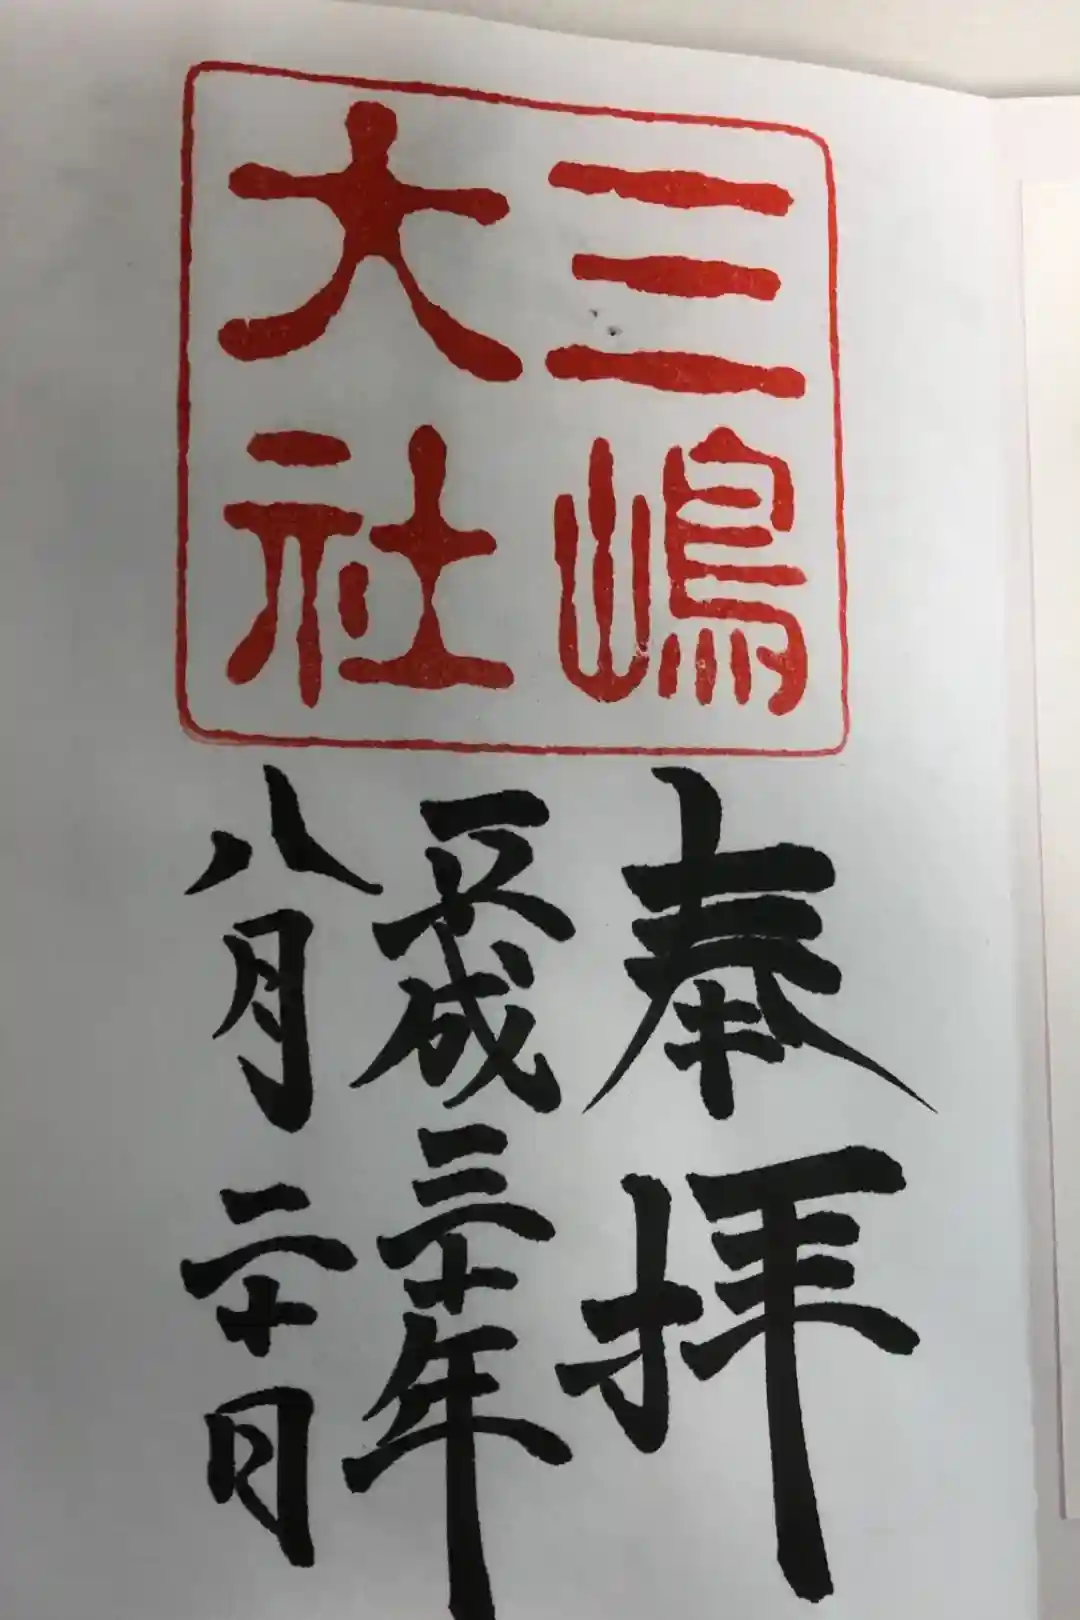 三嶋
大社
奉拝
平成三十年
八月二十日